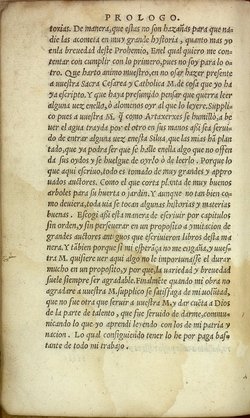 PROLOGO.
torias. De manera, que estas no son hazañas para que na-
die las acometa en muy grande hystoria, quanto mas yo
en la breuedad deste Prohemio, En el qual quiero me con-
tentar con cumplir con lo primero, pues no soy para lo o-
tro. Que harto animo muestro, en no osar hazer presente
a vuestra Sacra Cesarea y Catholica M. de cosa que yo ha
ya escripto. Y que haya presumpcio pensar que querra leer
alguna vez enello, o alomenos oyr al que lo leyere. Supplic
co pues a vuestra M. q̃ como Artaxerxes se humilló, a be
uer el agua trayda por el otro en sus manos assi sea serui-
do de entrar alguna vez enesta Silua, que las mias há plan
tado, que ya podra ser que se halle enella algo que no offen
da sus oydos y se huelgue de oyrlo ó de leerlo. Porque lo
que aqui escriuo, todo es tomado de muy grandes y appro
uados auctores. Como el que corta planta de muy buenos
arboles para su huerta o jardin. Y aunque no tan bien co-
mo deuiera, toda via se tocan algunas historias y materias
buenas. Escogi assi esta manera de escriuir por capitulos
sin orden, y sin perseuerar en un proposito a ymitacion de
grandes auctores antiguos que escriuieron libros desta ma
nera. Y tábien porque si mi esperiça no me engaña, y vuest-
ra M. quiere uer aqui algo no le importunasse el durar
mucho en un proposito, y por que, la uariedad y breuedad
suele siempre ser agradable. Finalmẽte quando mi obra no
agradare a vuestra M. supplico se satisfaga de mi uolútad,
que no fue otra que seruir a vuestra M. y dar cuéta a Dios
de la parte de talento, que fue seruido de darme, commu-
nicando lo que yo aprendi leyendo con los de mi patria y
nacion. Lo qual consiguiendo tener lo he por paga bas-
tante de todo mi trabajo.